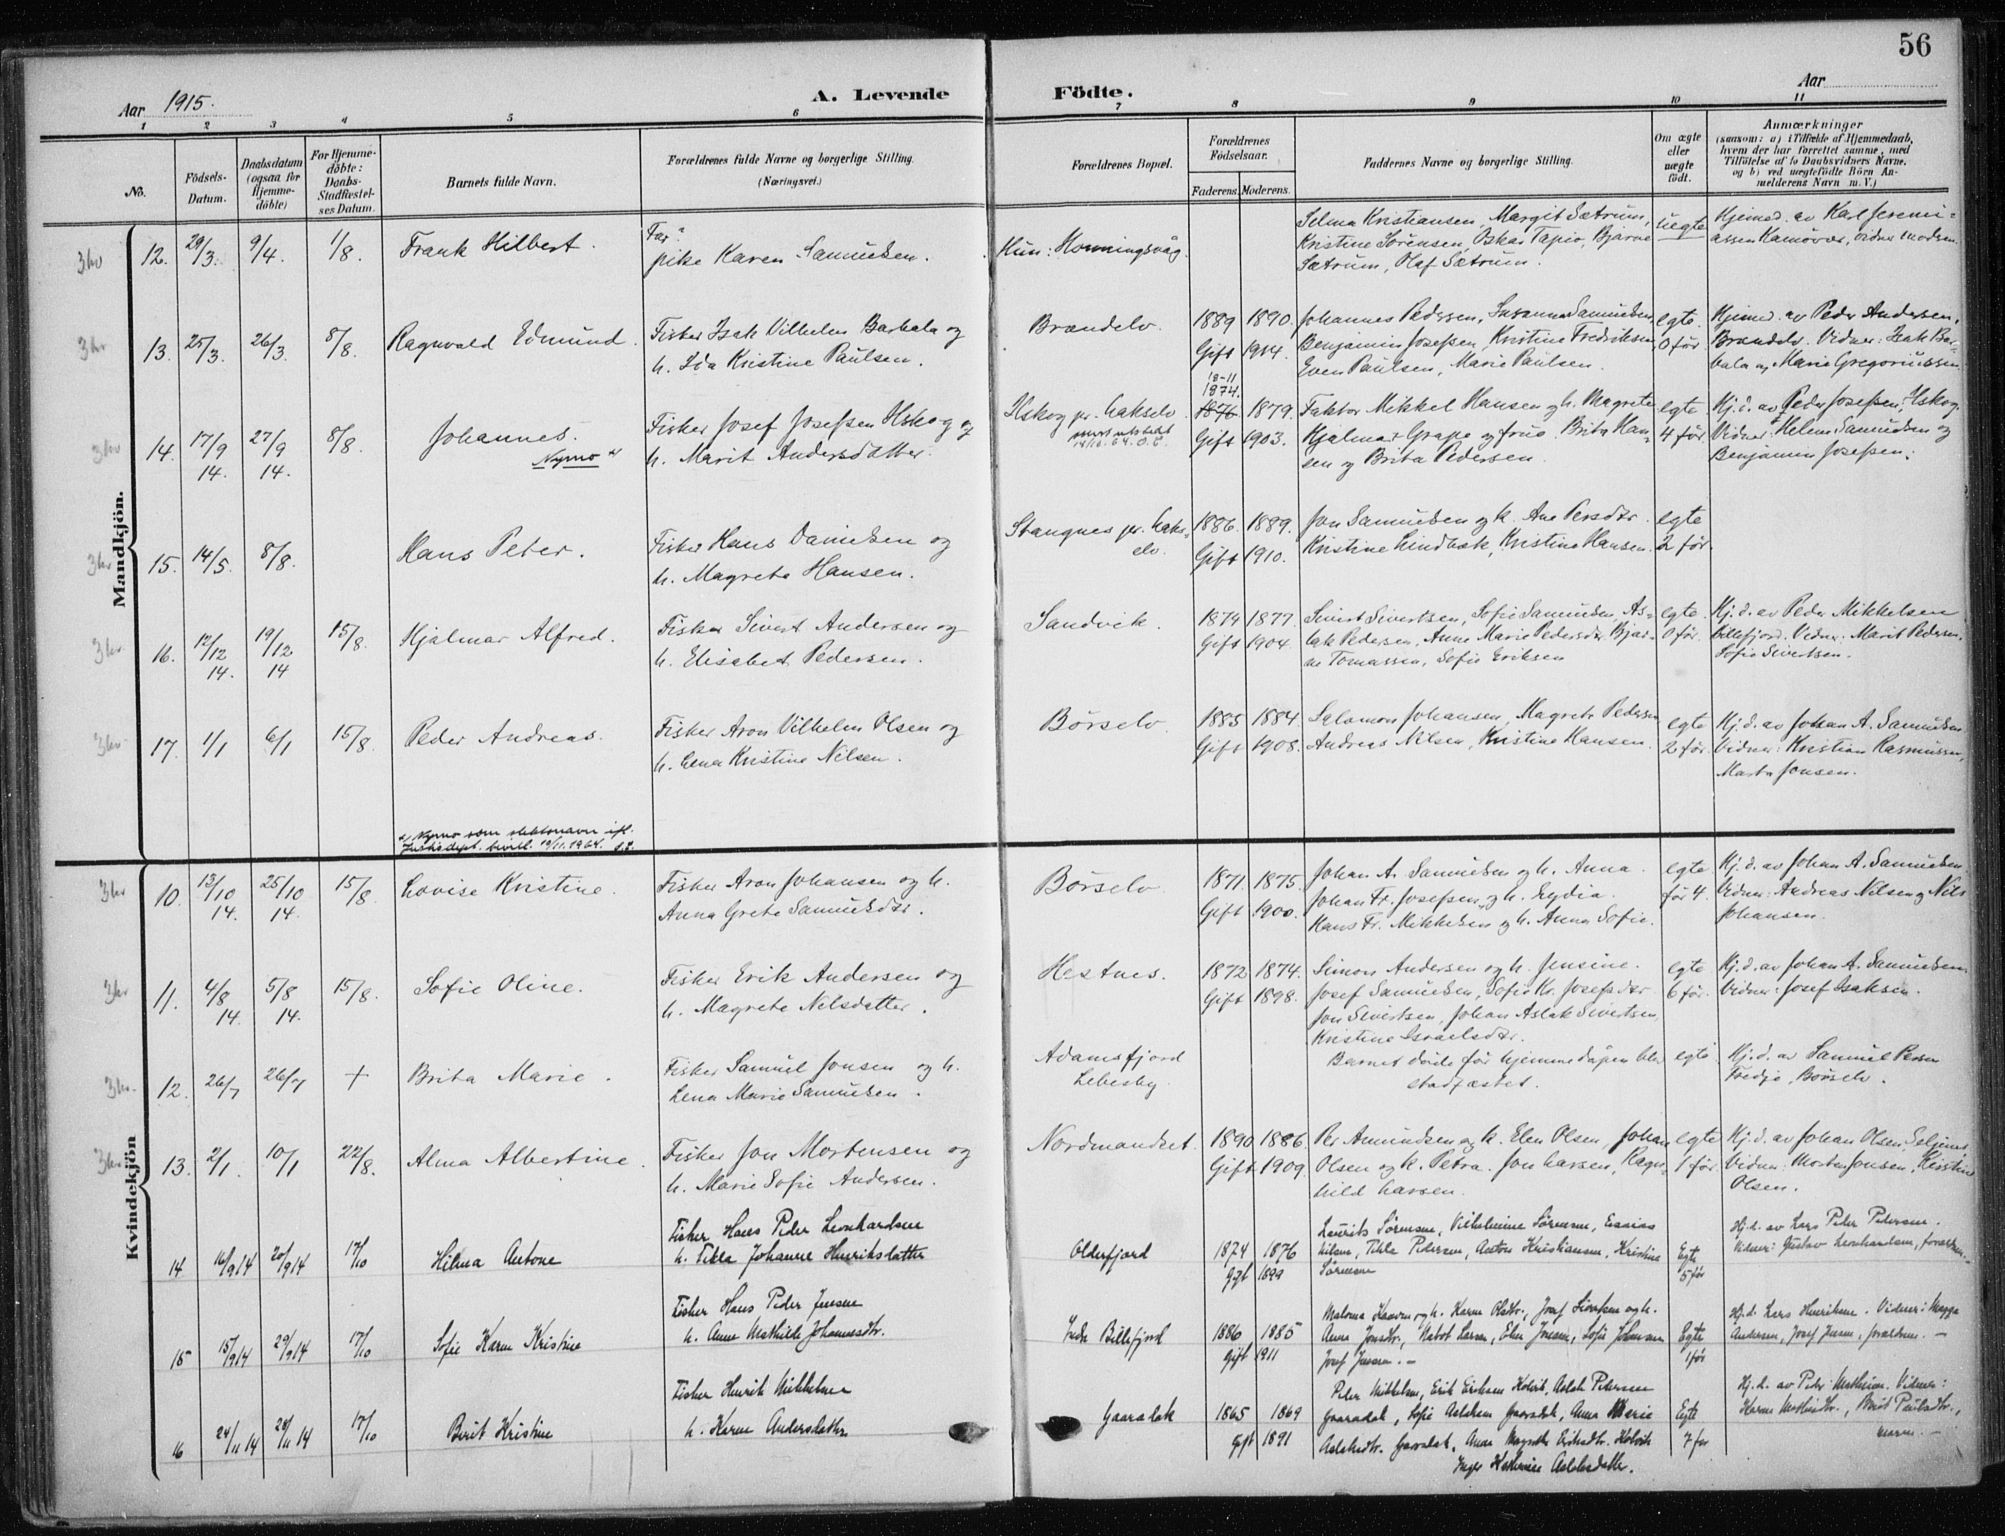 56
Aar 1915.
A. Levende Födte.
Aar
1 2 3 4 5 6 7 8 9 10 11
No.
Födsels-Datum.
Daabsdatum (ogsaa for Hjemme-döbte)
For Hjemme-döbte: Daabs-Stadfæstel-ses Datum.
Barnets fulde Navn.
Forældrenes fulde Navne og borgerlige Stilling.
(Næringsvei.)
Forældrenes Bopæl.
Forældrenes Födselsaar.
Faderens. Moderens.
Faddernes Navne og borgerlige Stilling.
Om ægte eller uægte födt.
Anmærkninger
(saasom: a) i Tilfælde af Hjemmedaab,
hvem der har forrettet samme, med
Tilföielse af to Daabsvidners Navne,
og b) ved uægtefödte Börn An-
melderens Navn m. V.)
Mandkjön.
12. 29/3. 9/4. 1/8. Frank Hilbert.
Far:
pike Karen Samuelsen.
Hun: Honningsvåg.
Selma Kristiansen, Margit Sætrum,
Kristine Sørensen, Oskar Tapio, Bjarne
Sætrum, Olaf Sætrum.
uegte
Hjemmed. av Karl Jeremi-
assen Kamøvær, vidner modern.
13. 25/3. 26/3 8/8. Ragnvald Edmund.
Fisker Isak Vilhelm Barbala og
h. Ida Kristine Paulsen.
Brændelv.
1889 1890.
Gift 1914.
Johannes Pedersen, Susanna Samuelsen,
Benjamin Josefsen, Kristine Fredriksen,
Even Paulsen, Marie Paulsen.
egte.
0 før
Hjemmed. av Peder Andersen,
Brændelv. Vidner: Isak Bar-
bala og Marie Gregoriussen
14. 17/9 14. 27/9 14. 8/8. Johannes.
Nymo x
Fisker Josef Josefsen Hskog og
h. Marit Andersdatter.
Hskog pr. Lakselv
18-11
1874.
1876 1879.
Gift 1903.
Faktor Mikkel Hansen og h. Magrete
Hjalmar Grape og frue. Brita Han-
sen og Brita Pedersen.
egte
4 før.
Hj.d. av Peder Josefsen, Hskog.
Vidner: Helene Samuelsen og
Benjamin Josefsen.
15. 14/5. 8/8. Hans Peter.
Fisker Hans Danielsen og
h. Magrete Hansen.
Stangnes pr. Laks-
elv.
1886. 1889.
Gift 1910.
Jon Samuelsen og h. Ane Persdtr.
Kristine Lindbæk, Kristine Hansen.
egte
2 før.
16. 12/12 14. 19/12 14 15/8. Hjalmar Alfred.
Fisker Sivert Andersen og
h. Elisabet Pedersen.
Sandvik.
1874 1877.
Gift 1904.
Sivert Sivertsen, Sofie Samuelsen, As-
lak Pedersen, Anne Marie Pedersdtr. Bjar-
ne Tomassen, Sofie Eriksen
egte
0 før.
Hj.d. av Peder Mikkelsen
Billefjord. Vidner: Marit Pedersen,
Sofie Sivertsen.
17. 1/1 6/1 15/8. Peder Andreas.
Fisker Aron Vilhelm Olsen og
h. Lena Kristine Nilsen.
Børselv.
1885 1884.
Gift 1908.
Salomon Johansen, Magrete Pedersen
Andreas Nilsen, Kristine Hansen.
egte
2 før.
Hj.d. av Johan A. Samuelsen
Vidner: Kristian Rasmussen,
Marta Jonsen.
x Nymo som slektsnavn ifl.
Justisdept. bevill. 10/11.1964.
Kvindekjön
10. 13/10 14. 25/10 14. 15/8. Lovise Kristine.
Fisker Aron Johansen og h.
Anna Grete Samuelsdtr.
Børselv
1871. 1875.
Gift 1900.
Johan A. Samuelsen og h. Anna.
Johan Fr. Josefsen og h. Lydia.
Hans Fr. Mikkelsen og h. Anna Sofie.
egte
før 4.
Hj.d. av Johan A. Samuelsen
Vidner: Andreas Nilsen og Nils
Johansen.
11. 4/8 14. 5/8 14. 15/8. Sofie Oline.
Fisker Erik Andersen og
h. Magrete Nilsdatter.
Hestnes.
1872 1874.
Gift 1898.
Simon Andersen og h. Jensine.
Josef Samuelsen, Sofie Kr. Josefsdtr
Jon Sivertsen, Johan Aslak Sivertsen,
Kristine Israelsdtr.
egte
6 før.
Hj.d. av Johan A. Samuelsen.
Vidner: Josef Isaksen.
12. 26/7 26/7 + Brita Marie.
Fisker Samuel Jonsen og h.
Lena Marie Samuelsen.
Adamsfjord
Lebesby
Barnet døde før hjemmedåpen blev
stadfæstet.
egte.
Hj.d. av Samuel Persen
Tredje, Børselv.
13. 2/1. 10/1 22/8. Alma Albertine.
Fisker Jon Mortensen og
h. Marie Sofie Andersen.
Nordmandset.
1890 1886.
Gift 1909.
Per Amundsen og h. Elen Olsen, Johan
Olsen og h. Petra. Jon Larsen, Ragn-
hild Larsen.
egte
1 før.
Hj.d. av Johan Olsen,
Vidner: Morten Jonsen, Kristine
Olsen.
14 16/9 14 20/9 14 17/10 Hilma Antone
Fisker Hans Peder Leonhardsen
h. Tekla Johanne Henriksdatter
Olderfjord
1874 1876
Gift 1899
Laurits Sørensen, Vilhelmine Sørensen, Esaias
Nilsen, Tekla Pedersen, Anton Kristiansen, Kristine
Sørensen
Egte
5 før
Hj.d. av Lars Peder Pedersen.
Vidner: Gustav Leonhardsen, forældren.
15 15/9 14 29/9 14 17/10 Sofie Karen Kristine
Fisker Hans Peder Jensen
h. Anne Mathilde Johannesdtr.
Indre Billefjord
1886 1885
Gift 1911
Anna Jonsdtr., Nabot Larsen, Elen Jensen, Sofie Johnsen
Josef Jensen. -
Egte
1 før
Hj.d. Lars Henriksen. Vidner: Magga
Andersen, Josef Jensen, forældrene. -
16 24/11 14 28/11 14 17/10 Berit Kristine
Fisher Henrik Mikkelsen
h. Karen Andersdatter
Gaaradak
1865 1869
Gift 1891
Peder Mikkelsen, Erik Eriksen Kolvik, Aslak Pedersen
Gaaradak, Sofie Aslaksen Gaaradak, Anna Marie
Aslaksdtr. Gaaradak, Anna Magrethe Eriksdtr. Kolvik
Inger Kathrine Aslaksdatter.
Egte
7 før
Hj.d. av Peder Mathisen. Vidner:
Karen Mathisdtr., Berit Paulsdtr.,